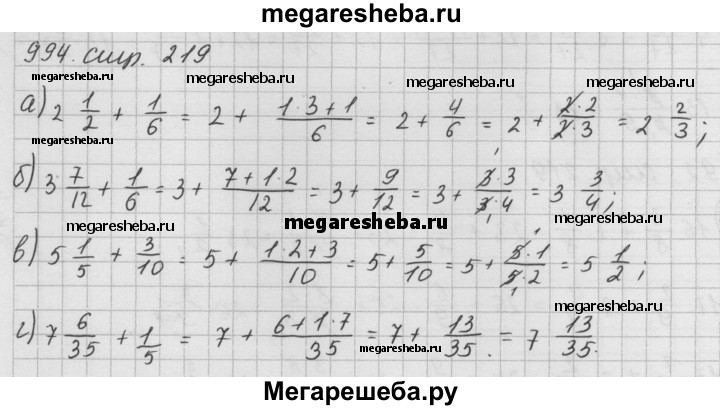 megaresheba.ru
994. стр. 219
megaresheba.ru
megaresheba.ru megaresheba.ru megaresheba.ru
а) 2 1/2 + 1/6 = 2 + (1·3+1)/6 = 2 + 4/6 = 2 + (2·2)/(2·3) = 2 2/3;
megaresheba.ru
б) 3 7/12 + 1/6 = 3 + (7+1·2)/12 = 3 + 9/12 = 3 + (3·3)/(3·4) = 3 3/4;
megaresheba.ru megaresheba.ru megaresheba.ru
в) 5 1/5 + 3/10 = 5 + (1·2+3)/10 = 5 + 5/10 = 5 + (5·1)/(5·2) = 5 1/2;
megaresheba.ru
г) 7 6/35 + 1/5 = 7 + (6+1·7)/35 = 7 + 13/35 = 7 13/35.
megaresheba.ru
Мегарешеба.ру